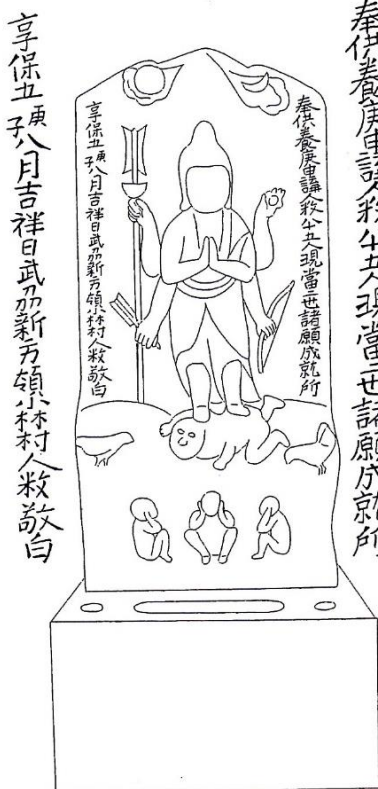 奉供養庚申講人数廿五人現當二世諸願成就所
奉供養庚申講人数廿五人現當二世諸願成就所
享保五庚子八月吉祥日武刕新方領小林村人数敬白
享保五庚子八月吉祥日武刕新方領小林村人数敬白